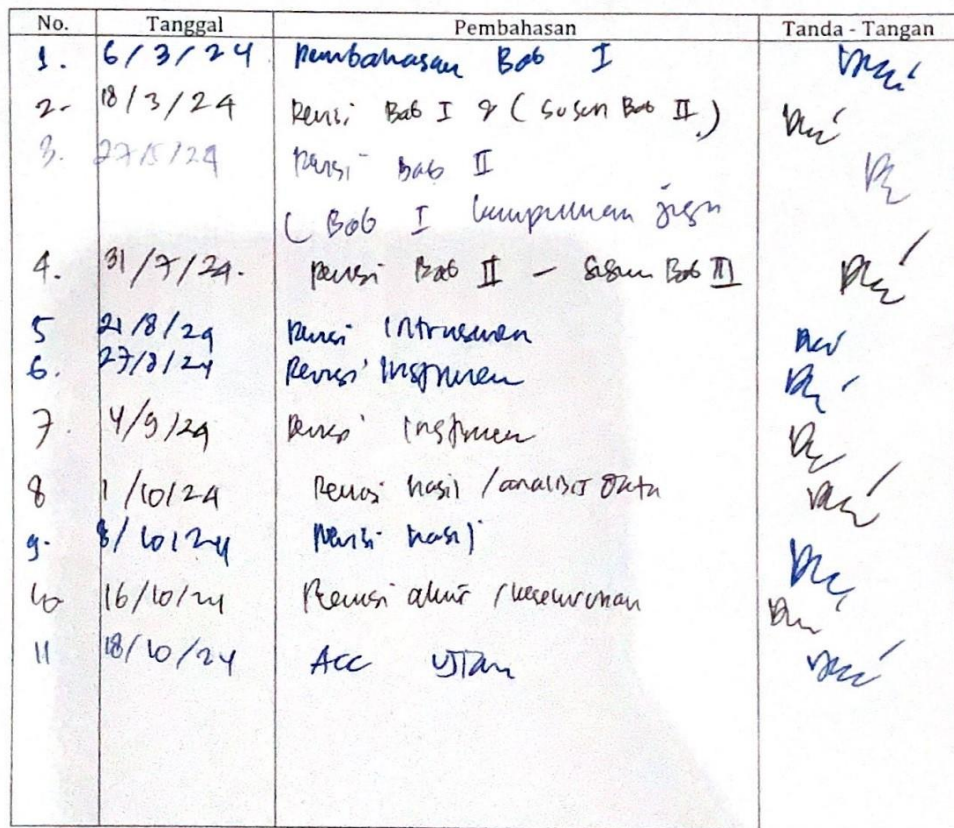 No. Tanggal Pembahasan Tanda - Tangan
1. 6/3/24 Pembahasan Bab I
2. 18/3/24 Revisi Bab I & (Susun Bab II.)
3. 27/5/24 Revisi Bab II
( Bab I kumpulkan juga
4. 31/7/24. Revisi Bab II - Susun Bab III
5 21/8/24 Revisi Intrumen
6. 27/8/24 Revisi Instrumen
7. 4/9/24 Revisi Instrumen
8 1/10/24 Revisi hasil / analisis Data
9. 8/10/24 Revisi hasil
10 16/10/24 Revisi akhir / keseluruhan
11 18/10/24 Acc Ujian